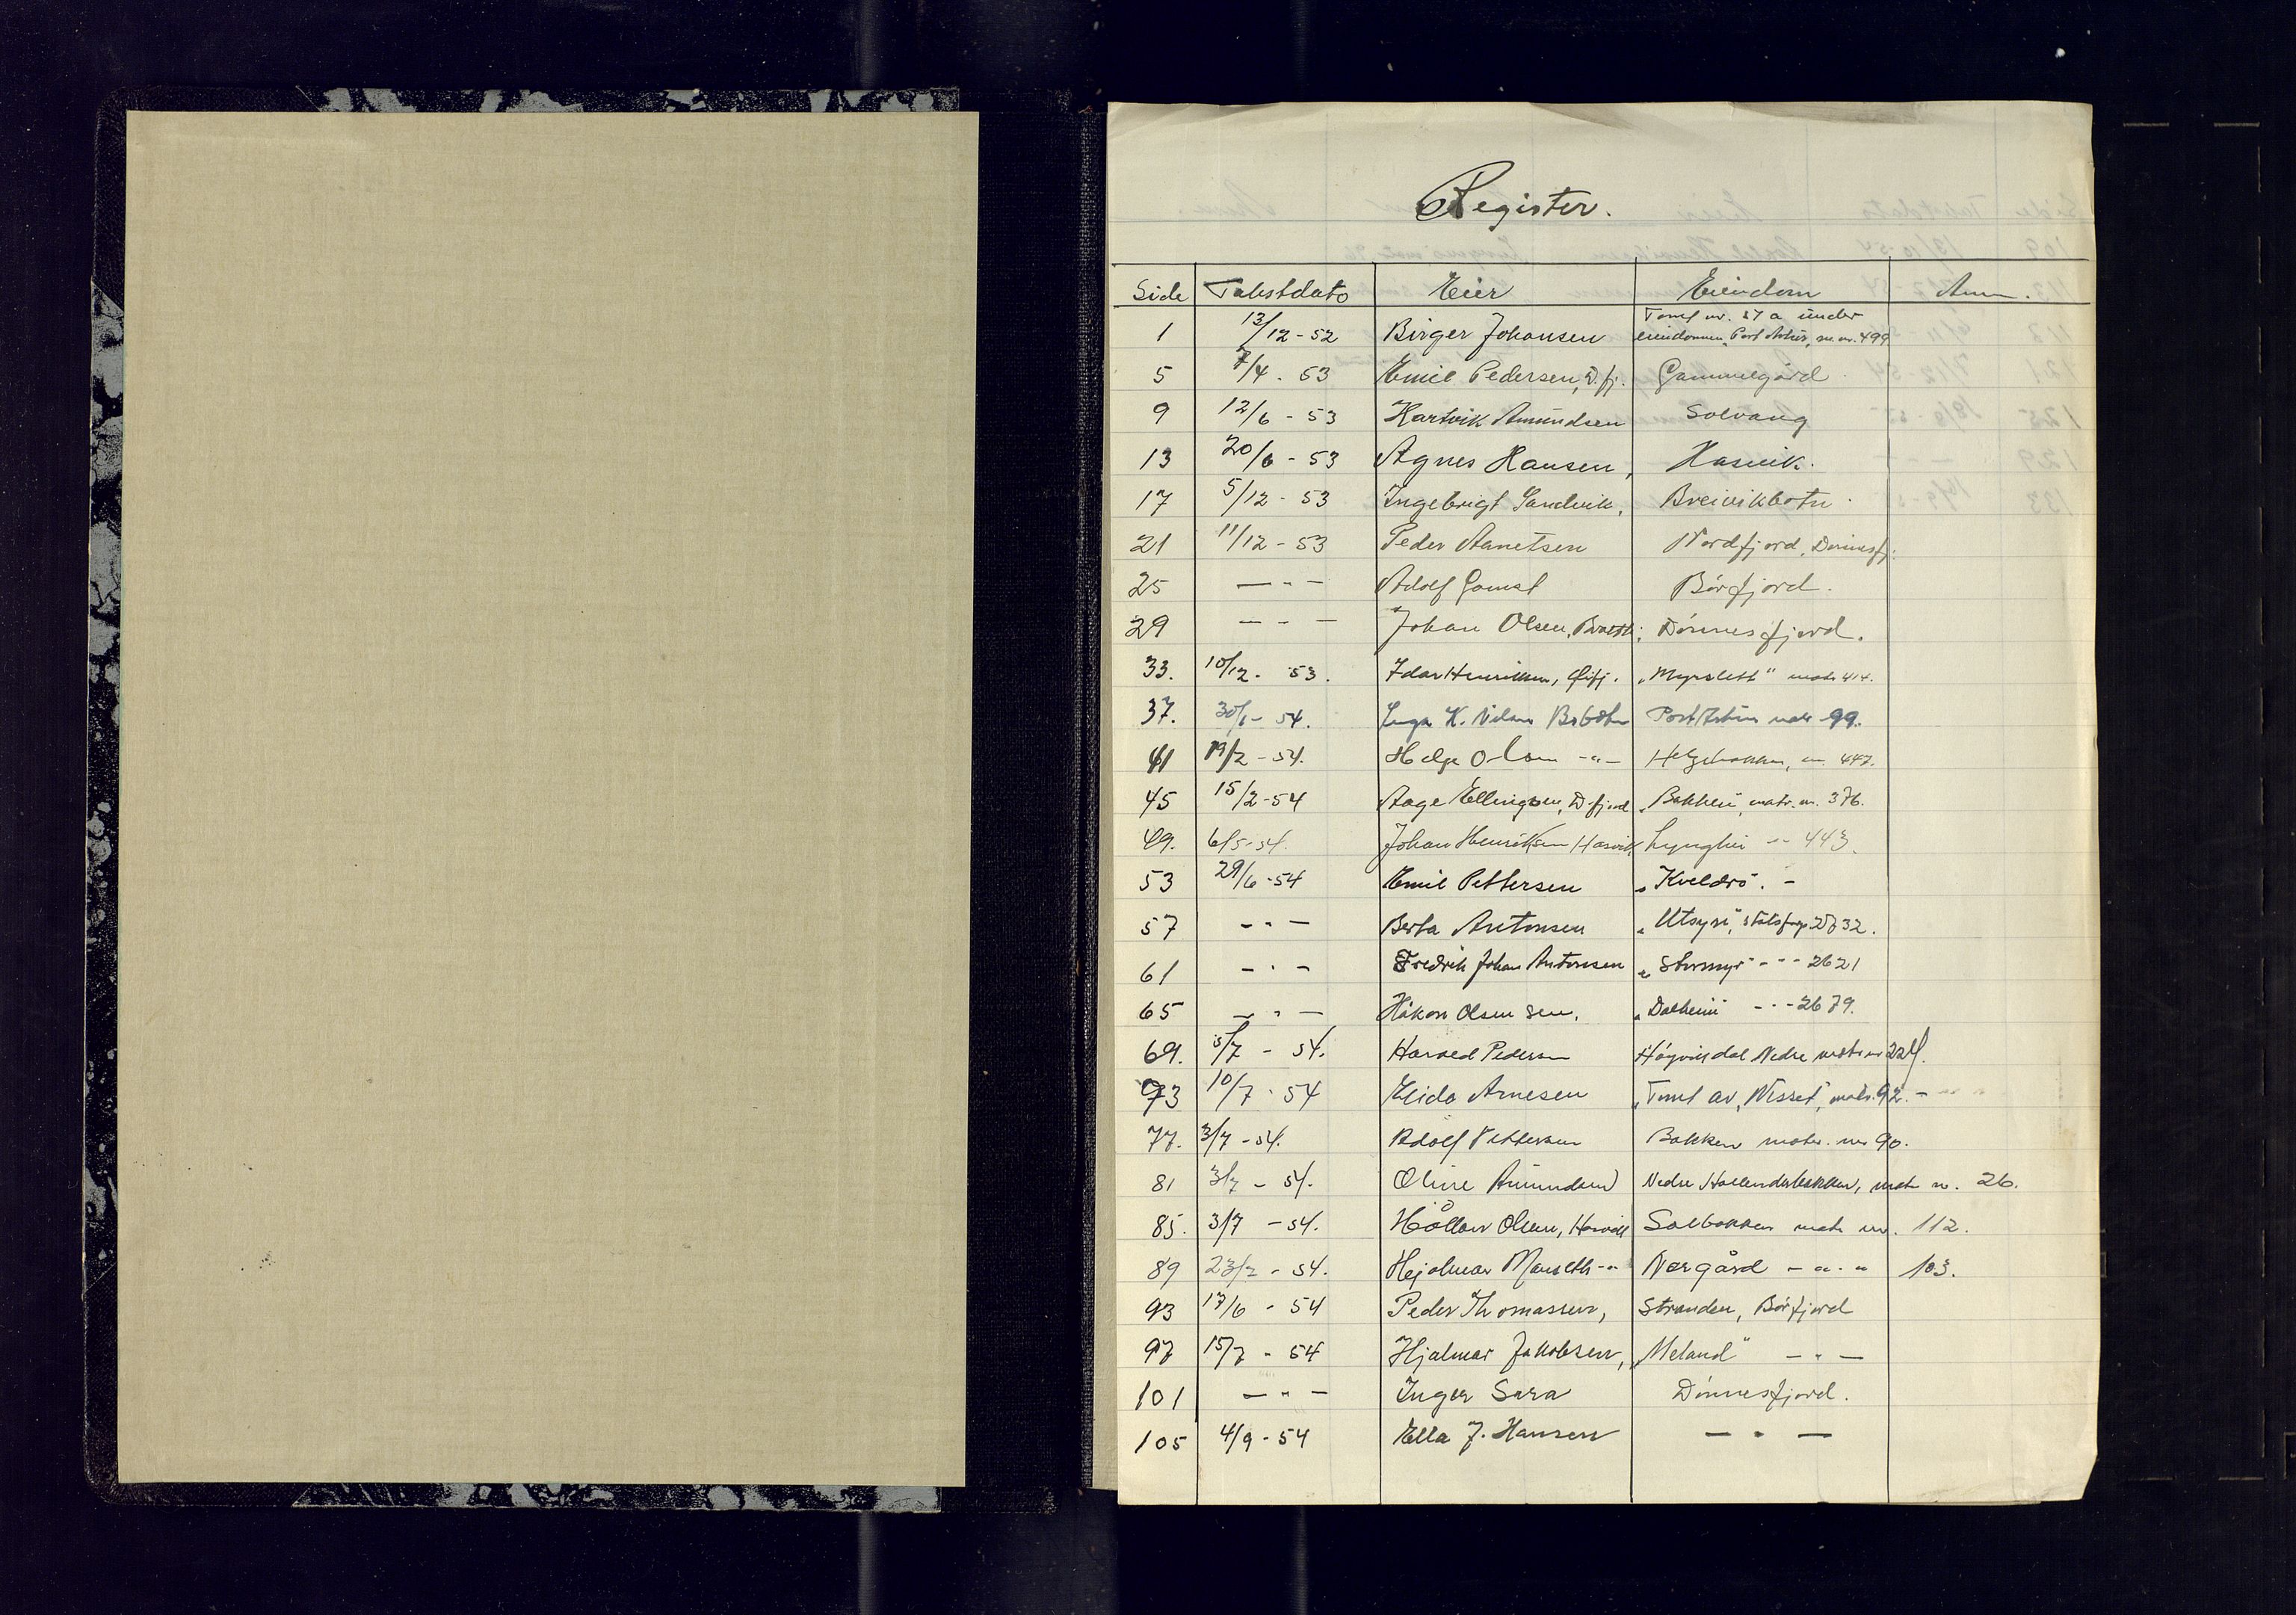 Register.
Side Takstdato Eier Eiendom Anm.
1 13/12-52 Birger Johansen Tomt nr. 27 a under eiendommen "Port Arthur, m.nr. 499
5 7/4. 53 Emil Pedersen, D.fj. Gammelgård
9 12/6 - 53 Hartvik Amundsen Solvang
13 20/6 - 53 Agnes Hansen, Hasvik.
17 5/12 - 53 Ingebrigt Sandvik, Breivikbotn.
21 11/12 - 53 Peder Aanetsen Nordfjord, Dønnesfj.
25 — " — Adolf Gamst Børfjord.
29 — - — Johan Olsen, Dønnesfjord.
33. 10/12. 53. Idar Henriksen, "Myrslett" matr 414.
37. 30/1- 54. Inga K. Nilsen Brbotn Port Arthur matr 99.
41 19/2 - 54. Helge Olsen -"- 447.
45 15/2-54 Aage Ellingsen, D.fjord "Bakken, matr. nr. 376.
49. 6/5-54. Johan Henriksen Hasvik Lynghei -"- 443.
53 29/6 -54 Emil Pettersen "Kveldro". -
57 - " — Berta Antonsen "Utsyn",
61 - " - Fredrik Johan Antonsen "Stormyr" - - - 2621
65 — " — Håkon Olsen sen. "Dalheim" - - - 2679.
69. 5/7 - 54. Harald Pedersen Høgvikdal Nedre matr nr 224.
73 10/7 - 54 Elida Arnesen "Tomt av, Nisset", matr. 92. -
77. 3/7 -54. Adolf Pettersen Bakken matr. nr 90.
81 3/7 - 54. Oline Amundsen Nedre Hollenderbakken, matr nr. 26.
85. 3/7 - 54. Olsen, Hasvik Solbakken matr nr. 112.
89 - 54. Hjalmar -"- Norgård - " - " 103.
93 17/6 - 54 Peder Thomassen, Stranden, Børfjord
97 15/7 - 54 Hjalmar Jakobsen, "Meland" — " —
101 — " — Inger Sara Dønnesfjord.
105 4/9 - 54 Ella J. Hansen — " —